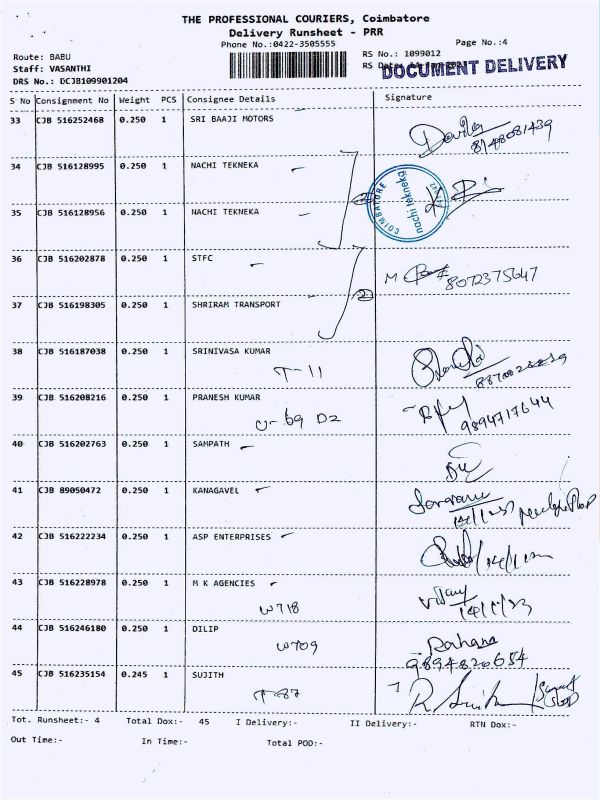 THE PROFESSIONAL COURIERS, Coimbatore
Delivery Runsheet - PRR
Phone No.:0422-3505555
Page No.:4
Route: BABU
RS No.: 1099012
Staff: VASANTHI
RS Date:
DOCUMENT DELIVERY
DRS No.: DCJB109901204
S No Consignment No Weight PCS Consignee Details Signature
33 CJB 516252468 0.250 1 SRI BAAJI MOTORS
8148081439
34 CJB 516128995 0.250 1 NACHI TEKNEKA
COIMBATORE
nachi tekneka
35 CJB 516128956 0.250 1 NACHI TEKNEKA
36 CJB 516202878 0.250 1 STFC
M
8072375647
2
37 CJB 516198305 0.250 1 SHRIRAM TRANSPORT
38 CJB 516187038 0.250 1 SRINIVASA KUMAR
T-11
39 CJB 516208216 0.250 1 PRANESH KUMAR
U-69 D2
9894717644
40 CJB 516202763 0.250 1 SAMPATH
41 CJB 89050472 0.250 1 KANAGAVEL
42 CJB 516222234 0.250 1 ASP ENTERPRISES
43 CJB 516228978 0.250 1 M K AGENCIES
W718
Vijay
14/1/23
44 CJB 516246180 0.250 1 DILIP
W709
Sahana
9894820654
45 CJB 516235154 0.245 1 SUJITH
T-87
Tot. Runsheet:- 4 Total Dox:- 45 I Delivery:- II Delivery:- RTN Dox:-
Out Time:- In Time:- Total POD:-